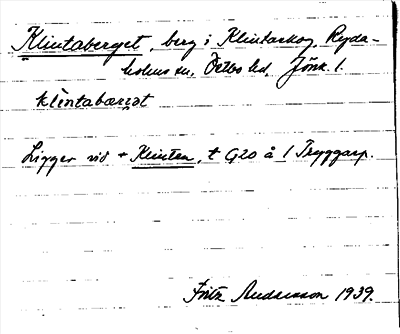 Klintaberget, berg i Klintaskog, Ryda-
holms sn, Östbo hd, Jönk. l.
klintabærgət
Ligger vid + Klinten, t G20 å l Tryggarp.
Fritz Andersson 1939.